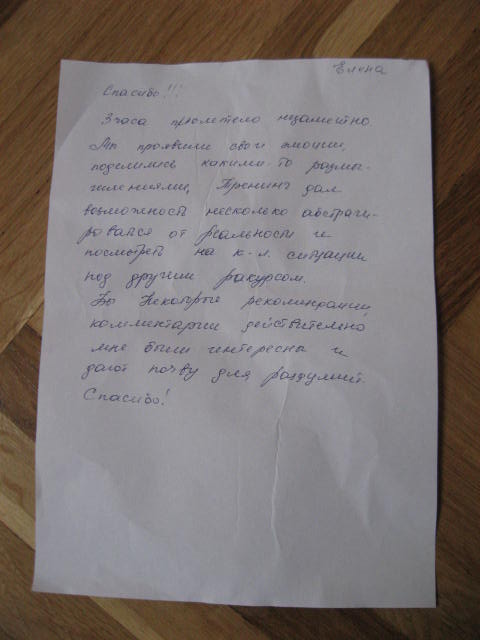 Елена
Спасибо!!!
3 часа пролетело незаметно
Мы проявили свои эмоции,
поделились какими-то размы-
шлениями, Тренинг дал
возможность несколько абстраги-
роваться от реальности и
посмотреть на к.-л. ситуации
под другим ракурсом.
Некоторые рекомендации,
комментарии действительно
мне были интересны и
дают почву для раздумий.
Спасибо!